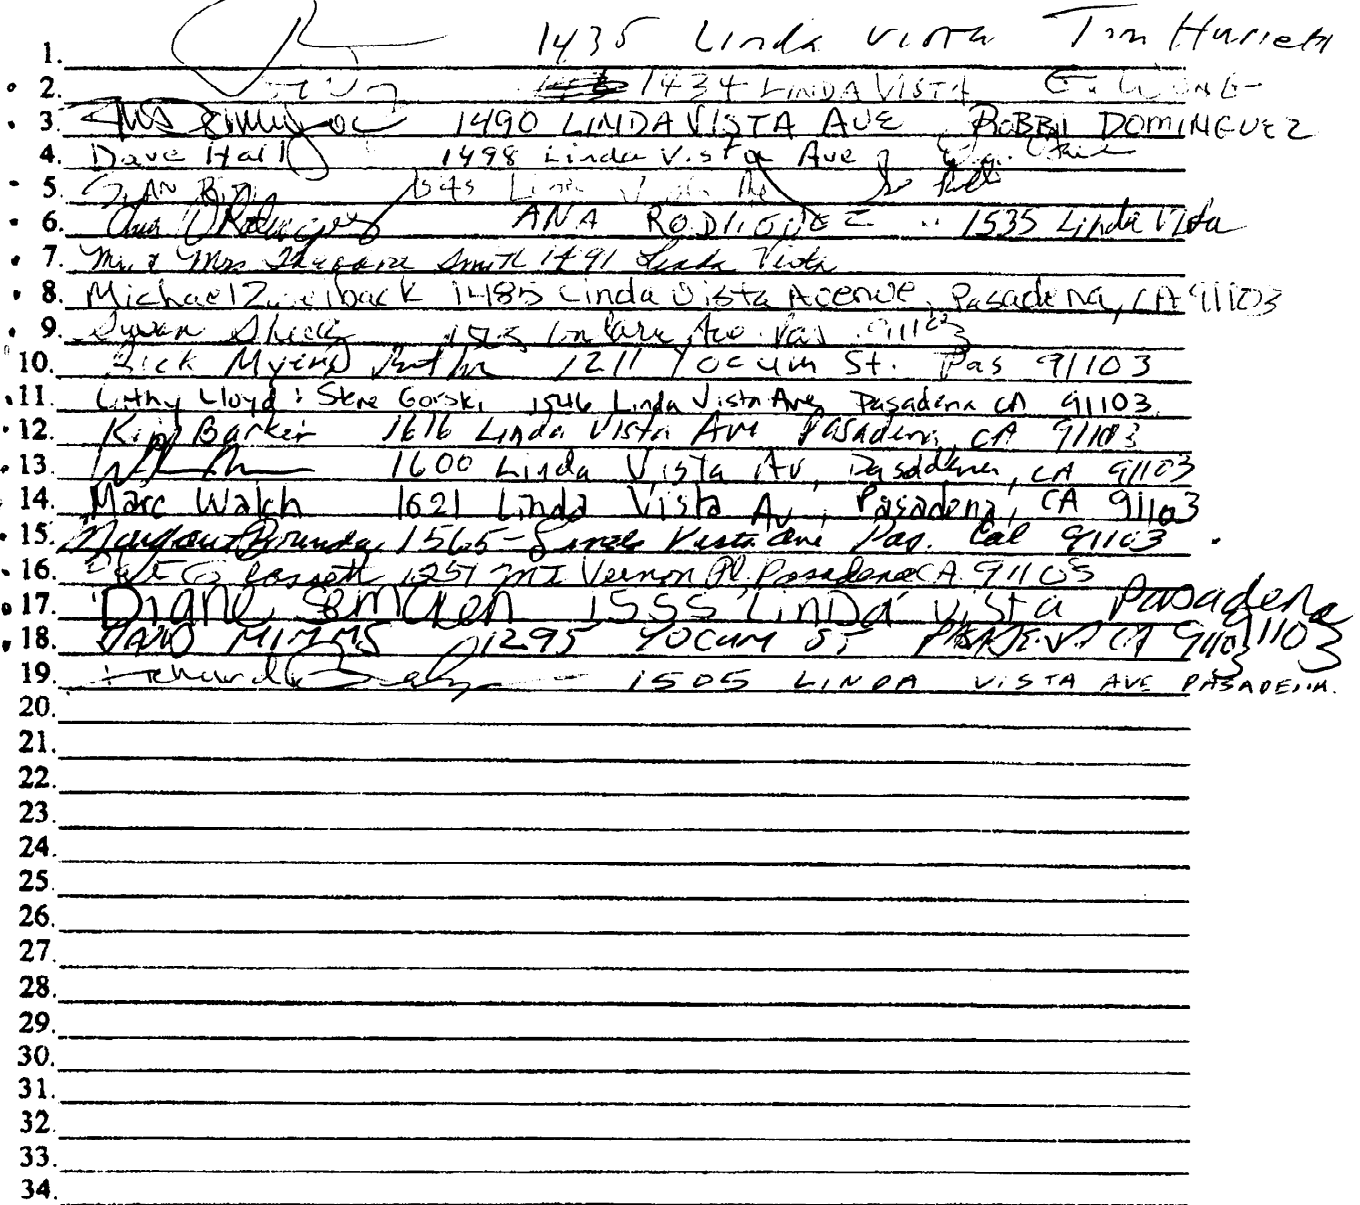 1. 1435 Linda Vista Tim
2. 1434 LINDA VISTA G. WONG
3. 1490 LINDA VISTA AVE BOBBII DOMINGUEZ
4. Dave Hall 1498 Linda Vista Ave
5. 1545 Linda Vista
6. ANA RODRIGUEZ 1535 Linda Vista
7. Mr. & Mrs Smith 1491 Linda Vista
8. Michael Zweiback 1485 Linda Vista Acenue, Pasadena, CA 91103
9. Susan Ave Pas 91103
10. Rick Myers 1211 Yocum St. Pas 91103
11. Cathy Lloyd : Steve Gorski 1546 Linda Vista Ave Pasadena CA 91103
12. Kipp Barker 1616 Linda Vista Ave Pasadena, CA 91103
13. 1600 Linda Vista Av, Pasadena, CA 91103
14. Marc Walch 1621 Linda Vista Av, Pasadena, CA 91103
15. 1565 - Linda Vista Ave Pas. Cal 91103
16. 1251 Mt Vernon Pl Pasadena CA 91103
17. Diane 1555 Linda Vista Pasadena 91103
18. MIMMS 1295 YOCUM ST PASADENA CA 91103
19. 1505 LINDA VISTA AVE PASADENA.
20.
21.
22.
23.
24.
25.
26.
27.
28.
29.
30.
31.
32.
33.
34.